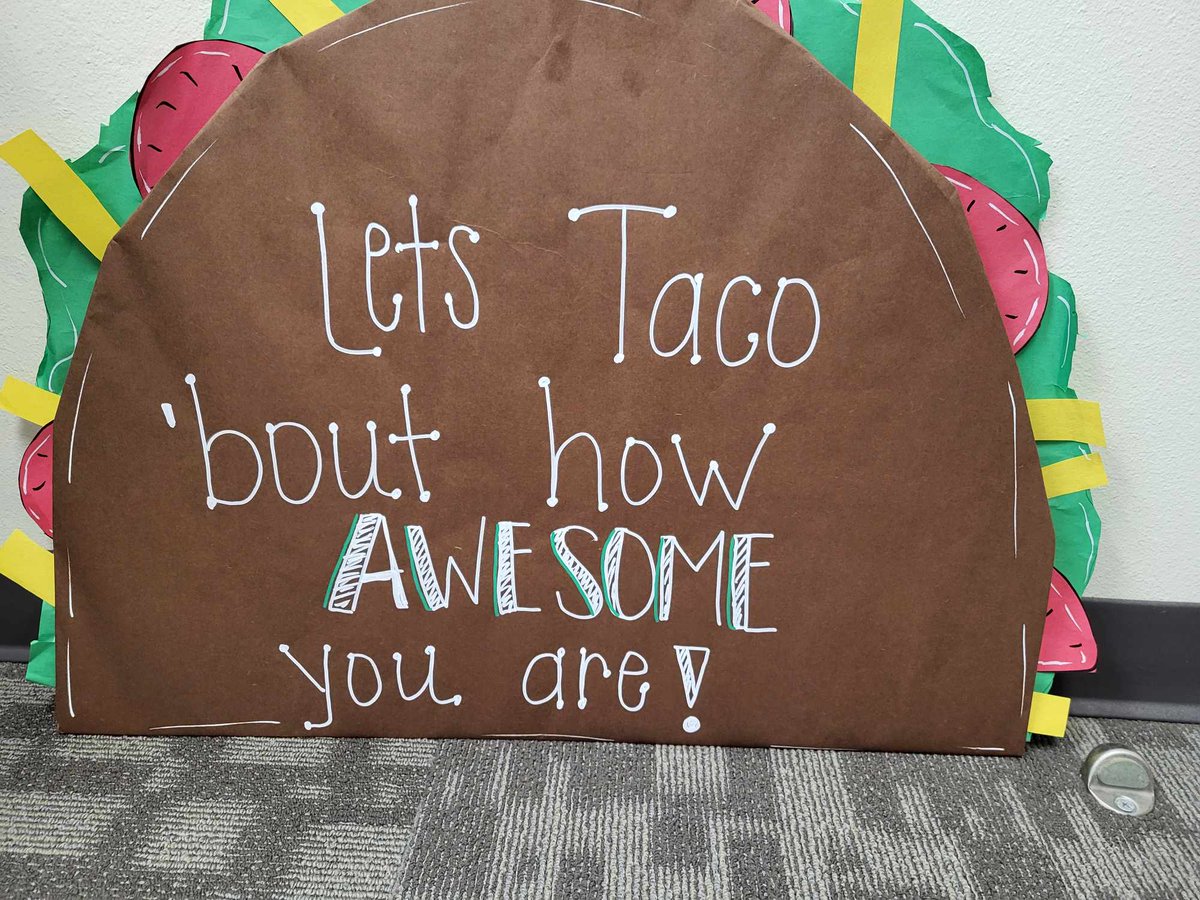 Lets Taco
'bout how
AWESOME
you are!